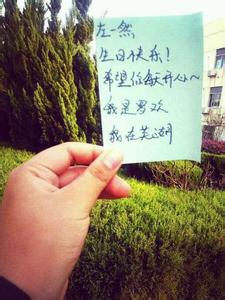 左一然
生日快乐!
希望你每天开心~
我是男欢
我在芜湖